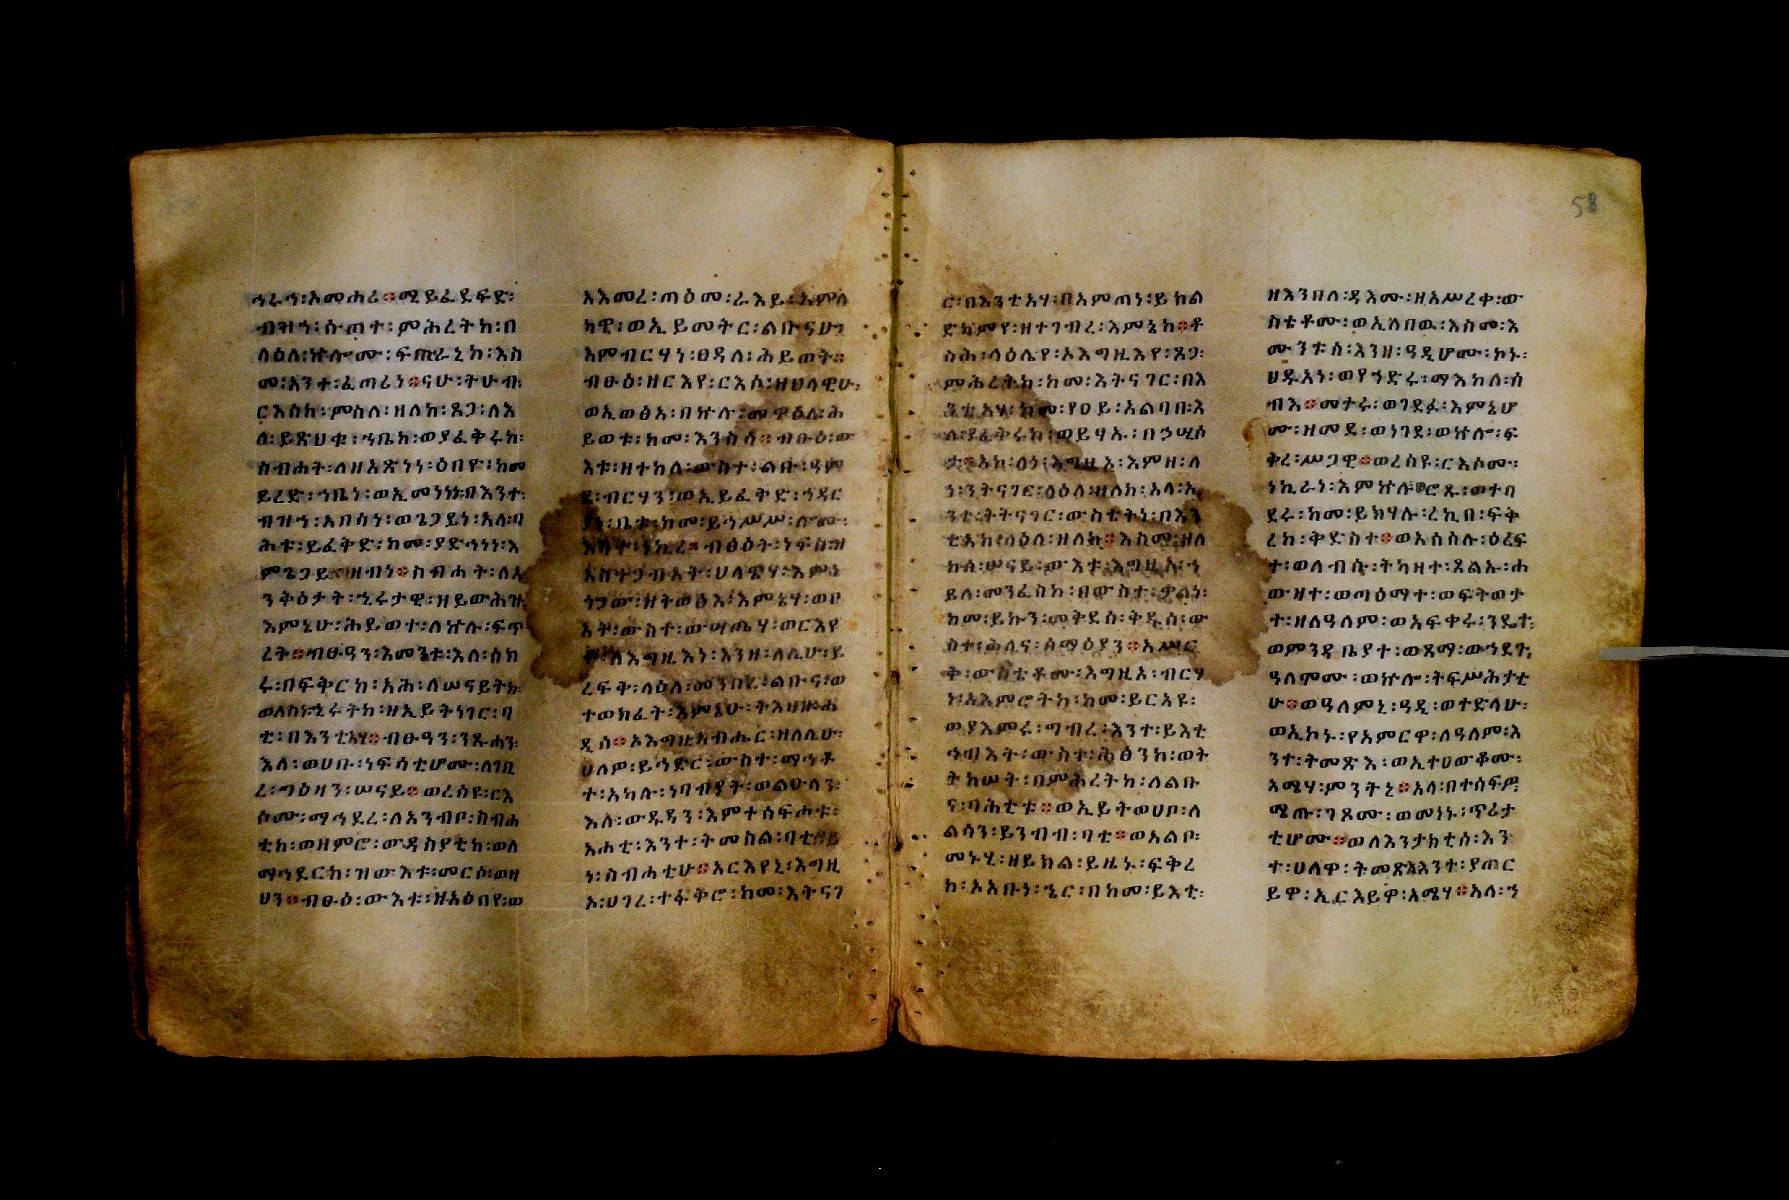 ኅሩኅ፡አመሐሪ፨ሚይፈደፍድ፡
ብዝኀ፡ሱጣተ፡ምሕረትከ፡በ
ላዕለ፡ኵሎሙ፡ፍጡራኒከ፡እስ
መ፡አንተ፡ፈጣሪነ፨ናሁ፡ትሁብ፡
ርእስከ፡ምስለ፡ዘለከ፡ጸጋ፡ለእ
ለ፡ይጽህቁ፡ኀቤከ፡ወያፈቅሩከ፡
ስብሐት፡ለዘአጽነነ፡ዕበዮ፡ከመ
ይረድ፡ኀቤነ፡ወኢመነነነ፡በእንተ፡
ብዝኀ፡አበሳነ፡ወጌጋይነ፡አላ፡ባ
ሕቱ፡ይፈቅድ፡ከመ፡ያድኅነነ፡እ
ምጌጋይ፡ዘብነ፨ስብሐት፡ለአ
ንቅዕታት፡ኂሩታዊ፡ዘይውሕዝ፡
እምኔሁ፡ሕይወተ፡ለኵሉ፡ፍጥ
ረት፨ብፁዓን፡እመንቱ፡እለ፡ሰክ
ሩ፡በፍቅርከ፡አሕ፡ለሠናይትከ፡
ወለስነ፡ኂሩትከ፡ዘኢይትነገር፡ባ
ቲ፡በእንቲአሃ፨ብፁዓን፡ንጹሐን፡
እለ፡ወሀቡ፡ነፍሳቲሆሙ፡ለገቢ
ረ፡ግዕዛን፡ሠናይ፨ወረሰዩ፡ርእ
ሶሙ፡ማኅደረ፡ለአንብቦ፡ስብሐ
ቲከ፡ወዘምሮ፡ውዳስያቲከ፡ወለ
ማኅደርከ፡ዝውእቱ፡መርሶ፡ወዛ
ህን፨ብፁዕ፡ውእቱ፡ዘአዕበየ፡ወ
አእመረ፡ጣዕመ፡ራእይ፡አምላ
ካዊ፡ወኢይመትር፡ልቡናሁ፡
እምብርሃነ፡ፀዳለ፡ሕይወት፨
ብፁዕ፡ዘርእየ፡ርእሶ፡ዘህላዊሁ፡
ወኢወፅአ፡በኵሉ፡መዋዕለ፡ሕ
ይወቱ፡ከመ፡እንስሳ፨ብፁዕ፡ው
እቱ፡ዘተከለ፡ውስተ፡ልቡ፡ዓም
ደ፡ብርሃን፡ወኢይፈቅድ፡ኀዳር
ቤቱ፡ከመ፡ይኅሥሥ፡ሎሙ፡
ነኪረ፨ብፅዕት፡ነፍስ፡ዛ
አስተጋብአት፡ህላዌሃ፡እምነ
ኀጋው፡ዘትወፅእ፡እምኔሃ፡ወቦ
አት፡ውስተ፡ውሣጤሃ፡ወርእየ
ለእግዚእነ፡እንዘ፡ለሊሁ፡ይ
ረፍቅ፡ላዕለ፡መንበረ፡ልቡና፡ወ
ተወክፈት፡እምኔሁ፡ትእዛዘ፡ሐ
ዲሰ፨ኦእግዚአብሔር፡ዘለሊሁ፡
ህላዎ፡ይኅድር፡ውስተ፡ማኅቶ
ተ፡አካሉ፡ነባብያት፡ወልሁላን፡
እለ፡ውዱዳን፡እምተሰፍሖቱ፡
አሐቲ፡እንተ፡ትመስል፡ባቲ፡
ነ፡ስብሐቲሁ፨አርእየኒ፡እግዚ
ኦ፡ሀገረ፡ተፋቅሮ፡ከመ፡እትናገ
ር፡በእንቲአሃ፡በአምጣነ፡ይክል
ድካምየ፡ዘተገብረ፡እምኔከ፨ቶ
ስሕ፡ላዕሌየ፡ኦእግዚእየ፡ጸጋ፡
ምሕረትከ፡ከመ፡እትናገር፡በእ
ንቲአሃ፡ከመ፡የዐይ፡አልባቢ፡እ
ለ፡ያፈቅሩከ፡ወይሃሉ፡በኃሢሶ
ታ፨አኮ፡ዕነ፡እግዚኦ፡እምዘ፡ለ
ነ፡ንትናገር፡ላዕለ፡ዘለከ፡አላ፡አ
ንቲ፡ትትናገር፡ውስቴትነ፡በእን
ቲአከ፡ላዕለ፡ዘለከ፨እስመ፡ዘለ
ከሰ፡ሠናይ፡ውእቱ፡እግዚኦ፡ኀ
ይለ፡መንፈስከ፡በውስተ፡ቃልነ፡
ከመ፡ይኩን፡መቅደሰ፡ቅዱሰ፡ው
ስተ፡ሕሊና፡ሰማዕያን፨አሥር
ቅ፡ውስቴቶሙ፡እግዚኦ፡ብርሃ
ነ፡አእምሮትከ፡ከመ፡ይርአዩ፡
ወያእምሩ፡ግብረ፡እንተ፡ይእቲ
ኅብእት፡ውስተ፡ሕፅንከ፡ወት
ትከሠት፡በምሕረትከ፡ለልቡ
ና፡ባሕቲቱ፨ወኢይትወሀቦ፡ለ
ልሳን፡ይንብብ፡ባቲ፨ወአልቦ፡
መኑሂ፡ዘይክል፡ይዜኑ፡ፍቅረ
ከ፡ኦአቡነ፡ኄር፡በከመ፡ይእቲ፡
ዘእንበለ፡ዳእሙ፡ዘአሥረቀ፡ው
ስቴቶሙ፡ወኢለበዉ፡እስመ፡እ
ሙንቱሰ፡እንዘ፡ዓዲሆሙ፡ኮኑ፡
ህዱአነ፡ወየኀድሩ፡ማእከለ፡ሰ
ብእ፨መተሩ፡ወገደፉ፡እምኔሆ
ሙ፡ዘመደ፡ወነገደ፡ወኵሎ፡ፍ
ቅረ፡ሥጋዊ፨ወረሰዩ፡ርእሶሙ፡
ነኪራነ፡እምኵሉ፡ሮጹ፡ወተባ
ደሩ፡ከመ፡ይክሃሉ፡ረኪበ፡ፍቅ
ረከ፡ቅድስተ፨ወአሰስሉ፡ዕረፍ
ተ፡ወለብሱ፡ትካዘተ፡ጸልኡ፡ሐ
ውዘተ፡ወጣዕማተ፡ወፍትወታ
ተ፡ዘለዓለም፡ወአፍቀሩ፡ንዴተ፡
ወምንዳቤያተ፡ወጾማ፡ውኅደገ፡
ዓለምሙ፡ወኵሎ፡ትፍሥሕታቲ
ሁ፨ወዓለምኒ፡ዓዲ፡ወተድላሁ፡
ወኢኮኑ፡የአምርዋ፡ለዓለም፡እ
ንተ፡ትመጽእ፡ወኢተዐውቆሙ፡
አሜሃ፡ምንትኒ፨አላ፡በተስፋ፡
ሜጡ፡ገጾሙ፡ወመነኑ፡ጥሪታ
ቲሆሙ፨ወለእንታክቲሰ፡እን
ተ፡ሀለዋ፡ትመጽእ፡እንተ፡ያጠር
ይዋ፡ኢርእይዋ፡አሜሃ፨አላ፡ኀ
58